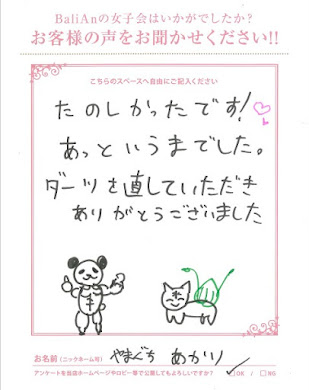 BaliAnの女子会はいかがでしたか?
お客様の声をお聞かせください!!
こちらのスペースへ自由にご記入ください
たのしかったです!
あっというまでした。
ダーツを直していただき
ありがとうございました
お名前(ニックネーム可) やまぐち あかり
アンケートを当店ホームページやロビー等で公開してもよろしいですか? □OK / □NG